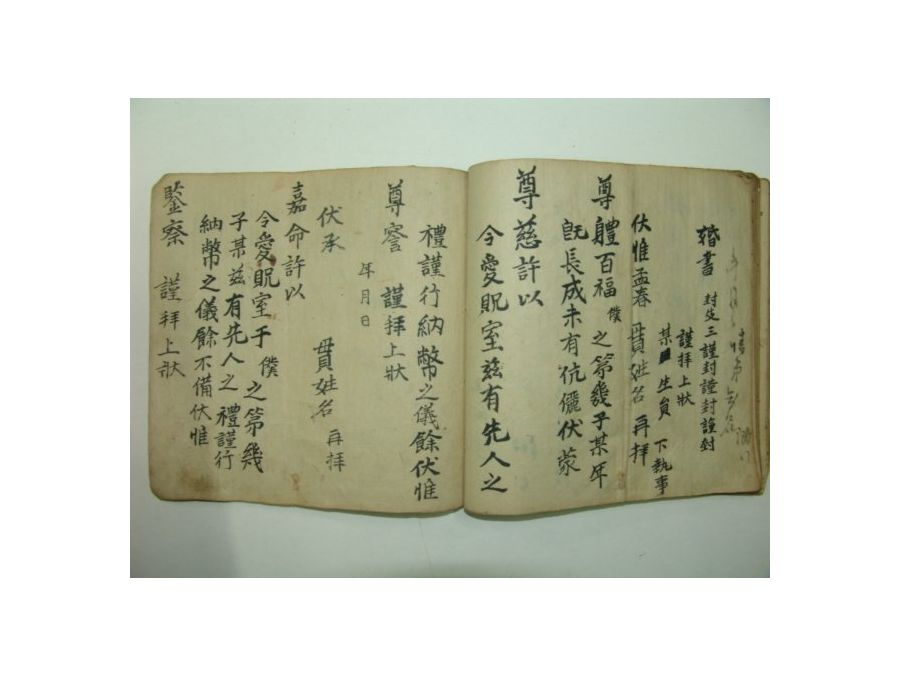 婚書 封皮三謹封謹封謹封
謹拜上狀
某生員 下執事
伏惟孟春 貫姓名 再拜
尊體百福僕之第幾子某年
旣長成未有伉儷伏蒙
尊慈許以
令愛貺室玆有先人之
禮謹行納幣之儀餘伏惟
尊詧 謹拜上狀
年月日
伏承 貫姓名 再拜
嘉命許以
令愛貺室于僕之第幾
子某玆有先人之禮謹行
納幣之儀餘不備伏惟
鑒察 謹拜上狀